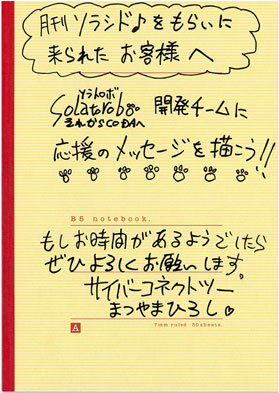 月刊ソラシド♪をもらいに
来られた お客様 へ
ソラトロボ
Solatorobo 開発チームに
それからCODAへ
応援のメッセージを描こう!!
B5 notebook.
もしお時間があるようでしたら
ぜひよろしくお願いします。
サイバーコネクトツー
まつやまひろし
A
7mm ruled 50sheets